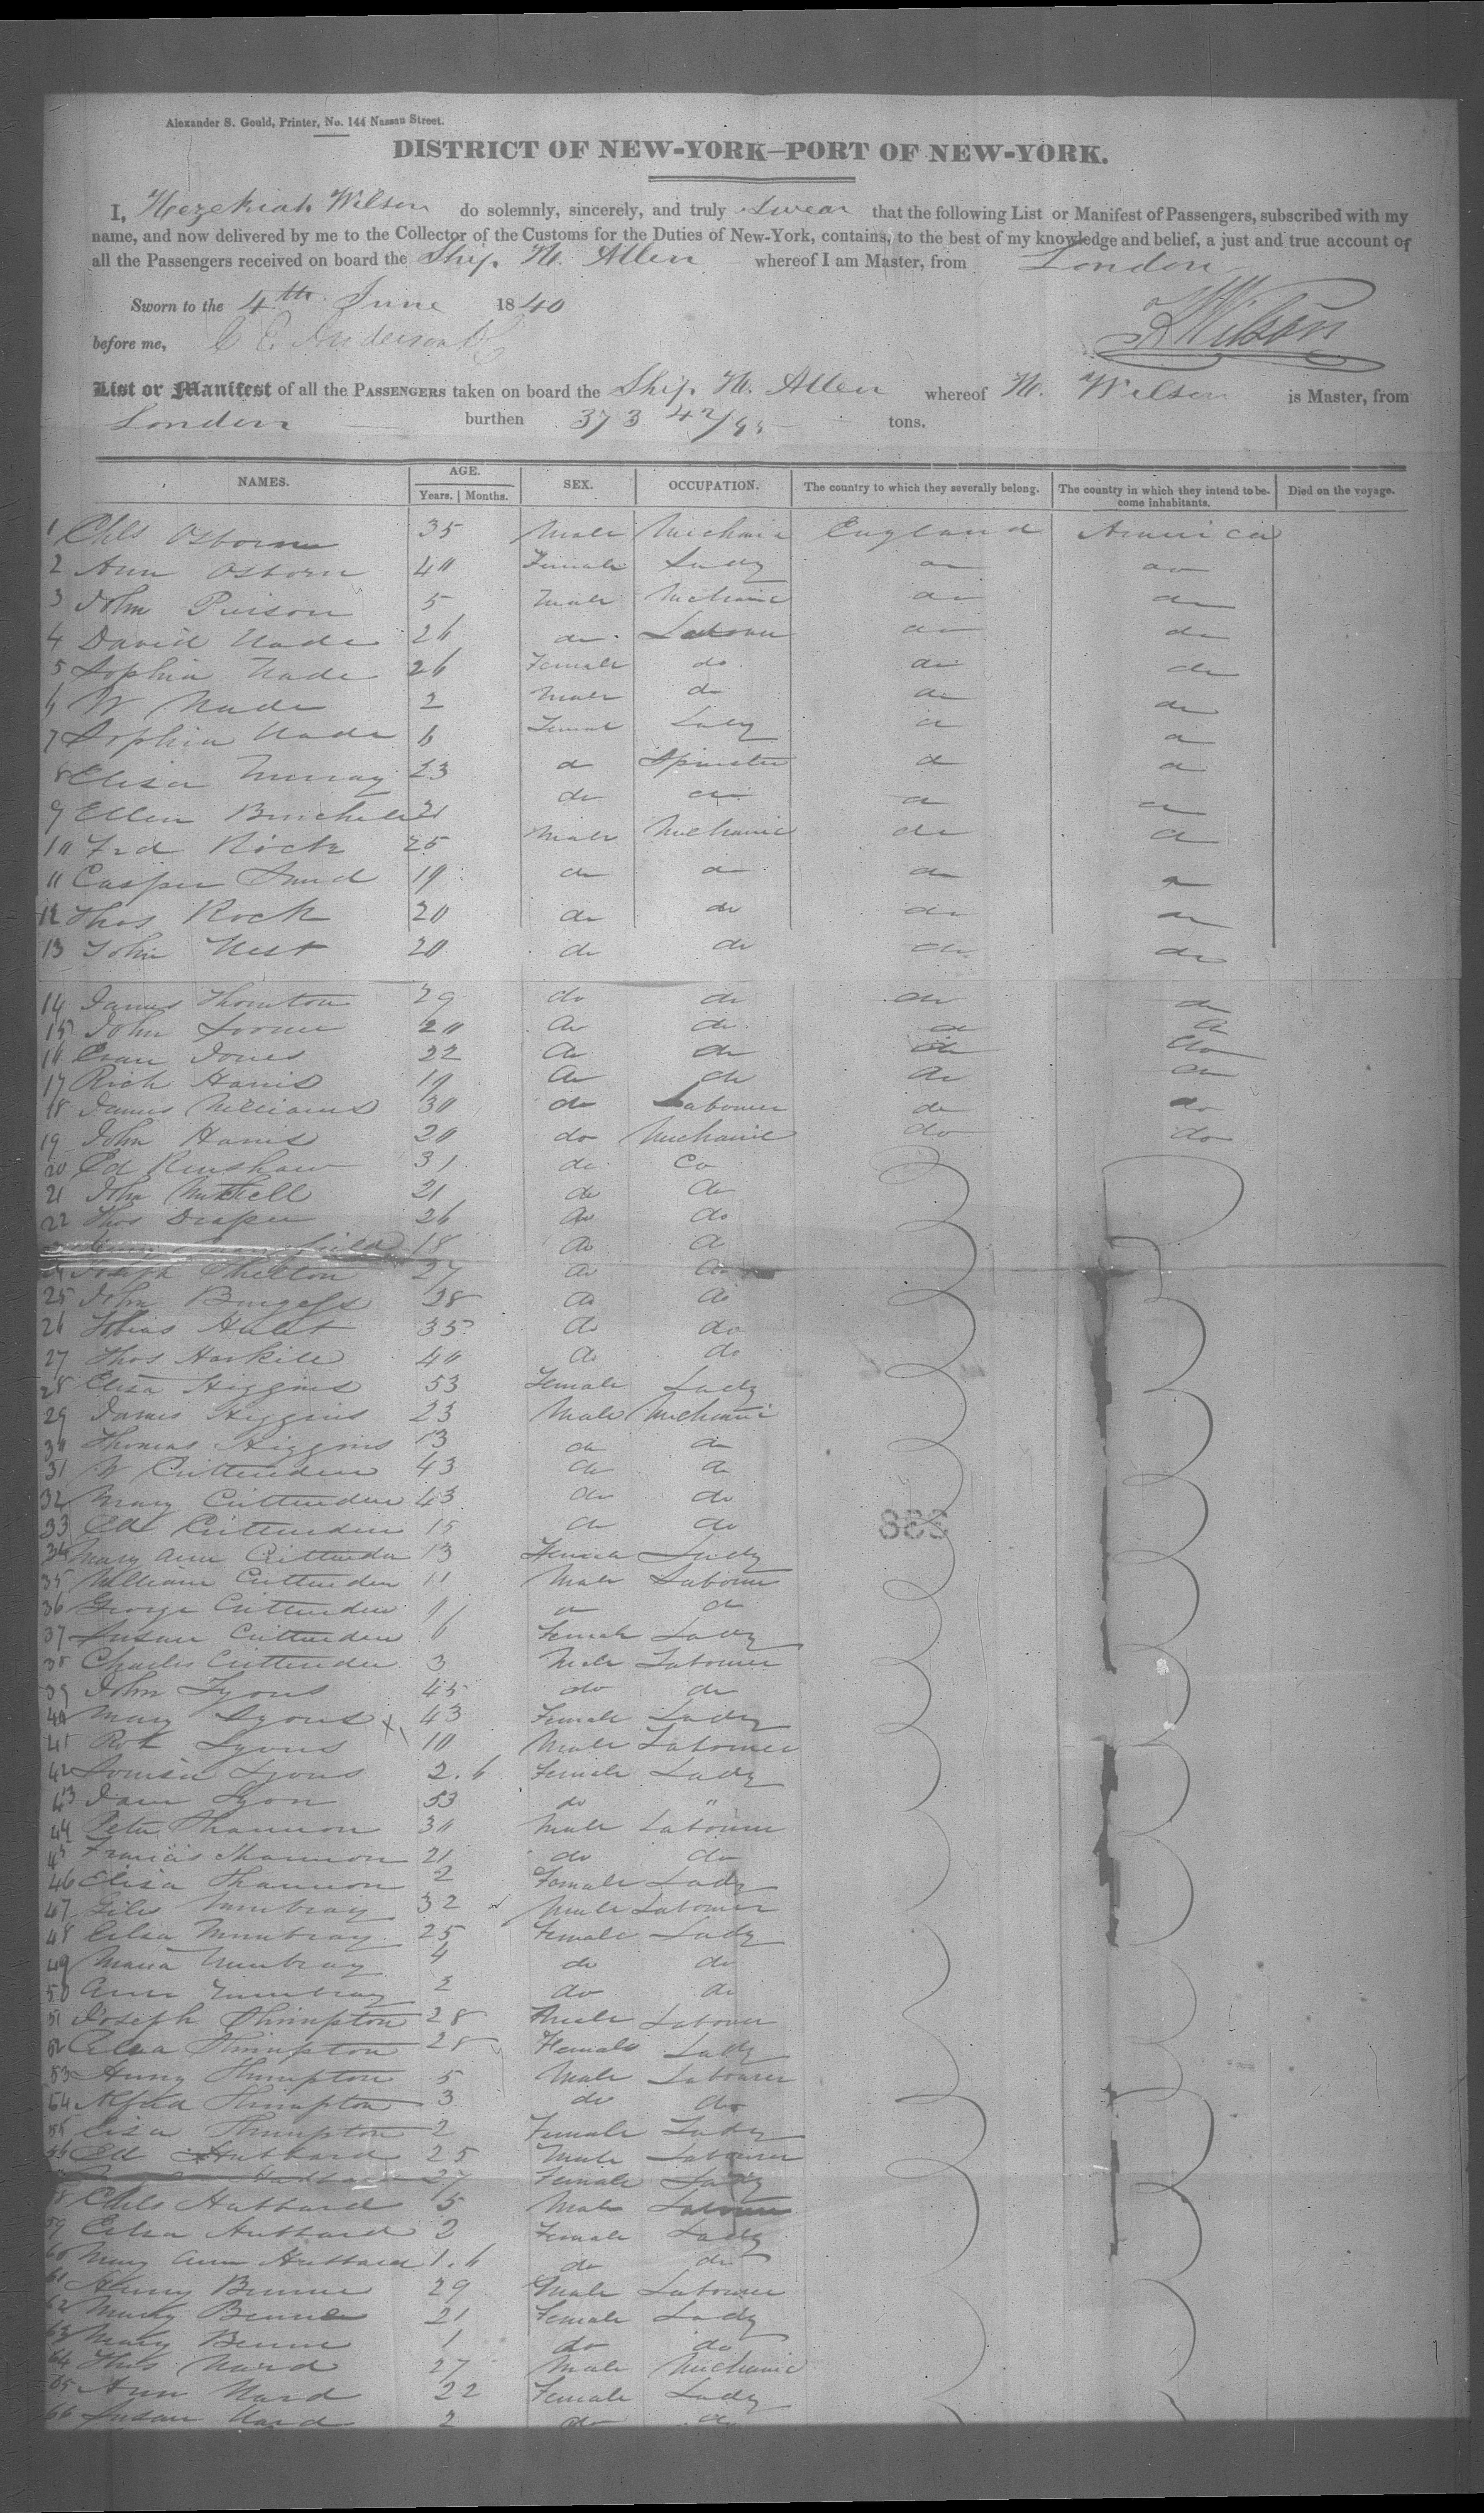 Alexander S. Gould, Printer, No. 144 Nassau Street.
DISTRICT OF NEW-YORK—PORT OF NEW-YORK.
I, Hezekiah Wilson do solemnly, sincerely, and truly swear that the following List or Manifest of Passengers, subscribed with my
name, and now delivered by me to the Collector of the Customs for the Duties of New-York, contains, to the best of my knowledge and belief, a just and true account of
all the Passengers received on board the Ship H. Allen whereof I am Master, from London
Sworn to the 4th June 1840
before me, C E Anderson H Wilson
List or Manifest of all the PASSENGERS taken on board the Ship H. Allen whereof H. Wilson is Master, from
London burthen 373 42/95 tons.
NAMES. AGE. SEX. OCCUPATION. The country to which they severally belong. The country in which they intend to become inhabitants. Died on the voyage.
Years. Months.
1 Chls Osborne 35 Male Mechanic England America
2 Ann Osborn 40 Female Lady do do
3 John 5 Male Mechanic do do
4 David Wade 26 do Labourer do do
5 Sophia Wade 26 Female do do do
6 W Wade 2 Male do do do
7 Sophia Wade 6 Female Lady do do
8 Elisa Murray 23 do Spinster do do
9 Ellen 21 do do do do
10 Frd Rock 25 Male Mechanic do do
11 Casper 19 do do do do
12 Thos Rock 20 do do do do
13 John West 20 do do do do
14 James Thornton 29 do do do do
15 John 20 do do do do
16 Evan Jones 22 do do do do
17 Rich Harris 19 do do do do
18 James Williams 30 do Labourer do do
19 John Harris 20 do Mechanic do do
20 Ed Renshaw 31 do do
21 John Mitchell 21 do do
22 Thos Draper 26 do do
18 do do
Joseph Shelton 27 do do
25 John Burgess 28 do do
26 Tobias 35 do do
27 Thos Haskill 40 do do
28 Elisa Higgins 53 Female Lady
29 James Higgins 23 Male Mechanic
30 Thomas Higgins 13 do do
31 W Cuttenden 43 do do
32 Mary Cuttenden 43 do do
33 Ed Cuttenden 15 do do
34 Mary Ann Cuttenden 13 Female Lady
35 William Cuttenden 11 Male Labourer
36 George Cuttenden 9 do do
37 Susan Cuttenden 6 Female Lady
38 Charles Cuttenden 3 Male Labourer
39 John Lyons 45 do do
40 Mary Lyons 43 Female Lady
41 Rob Lyons 10 Male Labourer
42 Louisa Lyons 2.6 Female Lady
43 Jane Lyon 53 do "
44 Peter Shannon 30 Male Labourer
45 Francis Shannon 21 do do
46 Elisa Shannon 2 Female Lady
47 Giles Mumbray 32 Male Labourer
48 Elisa Mumbray 25 Female Lady
49 Maria Mumbray 4 do do
50 Ann Mumbray 2 do do
51 Joseph Shrimpton 28 Male Labourer
52 Elisa Shrimpton 28 Female Lady
53 Henry Shrimpton 5 Male Labourer
54 Alfred Shrimpton 3 do do
55 Elisa Shrimpton 2 Female Lady
56 Ed Hubbard 25 Male Labourer
Hubbard 27 Female Lady
58 Chls Hubbard 5 Male Labourer
59 Elisa Hubbard 3 Female Lady
60 Mary Ann Hubbard 1.6 do do
61 Henry 29 Male Labourer
62 Mary 21 Female Lady
63 Mary 1 do do
64 Thos Ward 27 Male Mechanic
65 Ann Ward 22 Female Lady
66 Susan Ward 2 do do